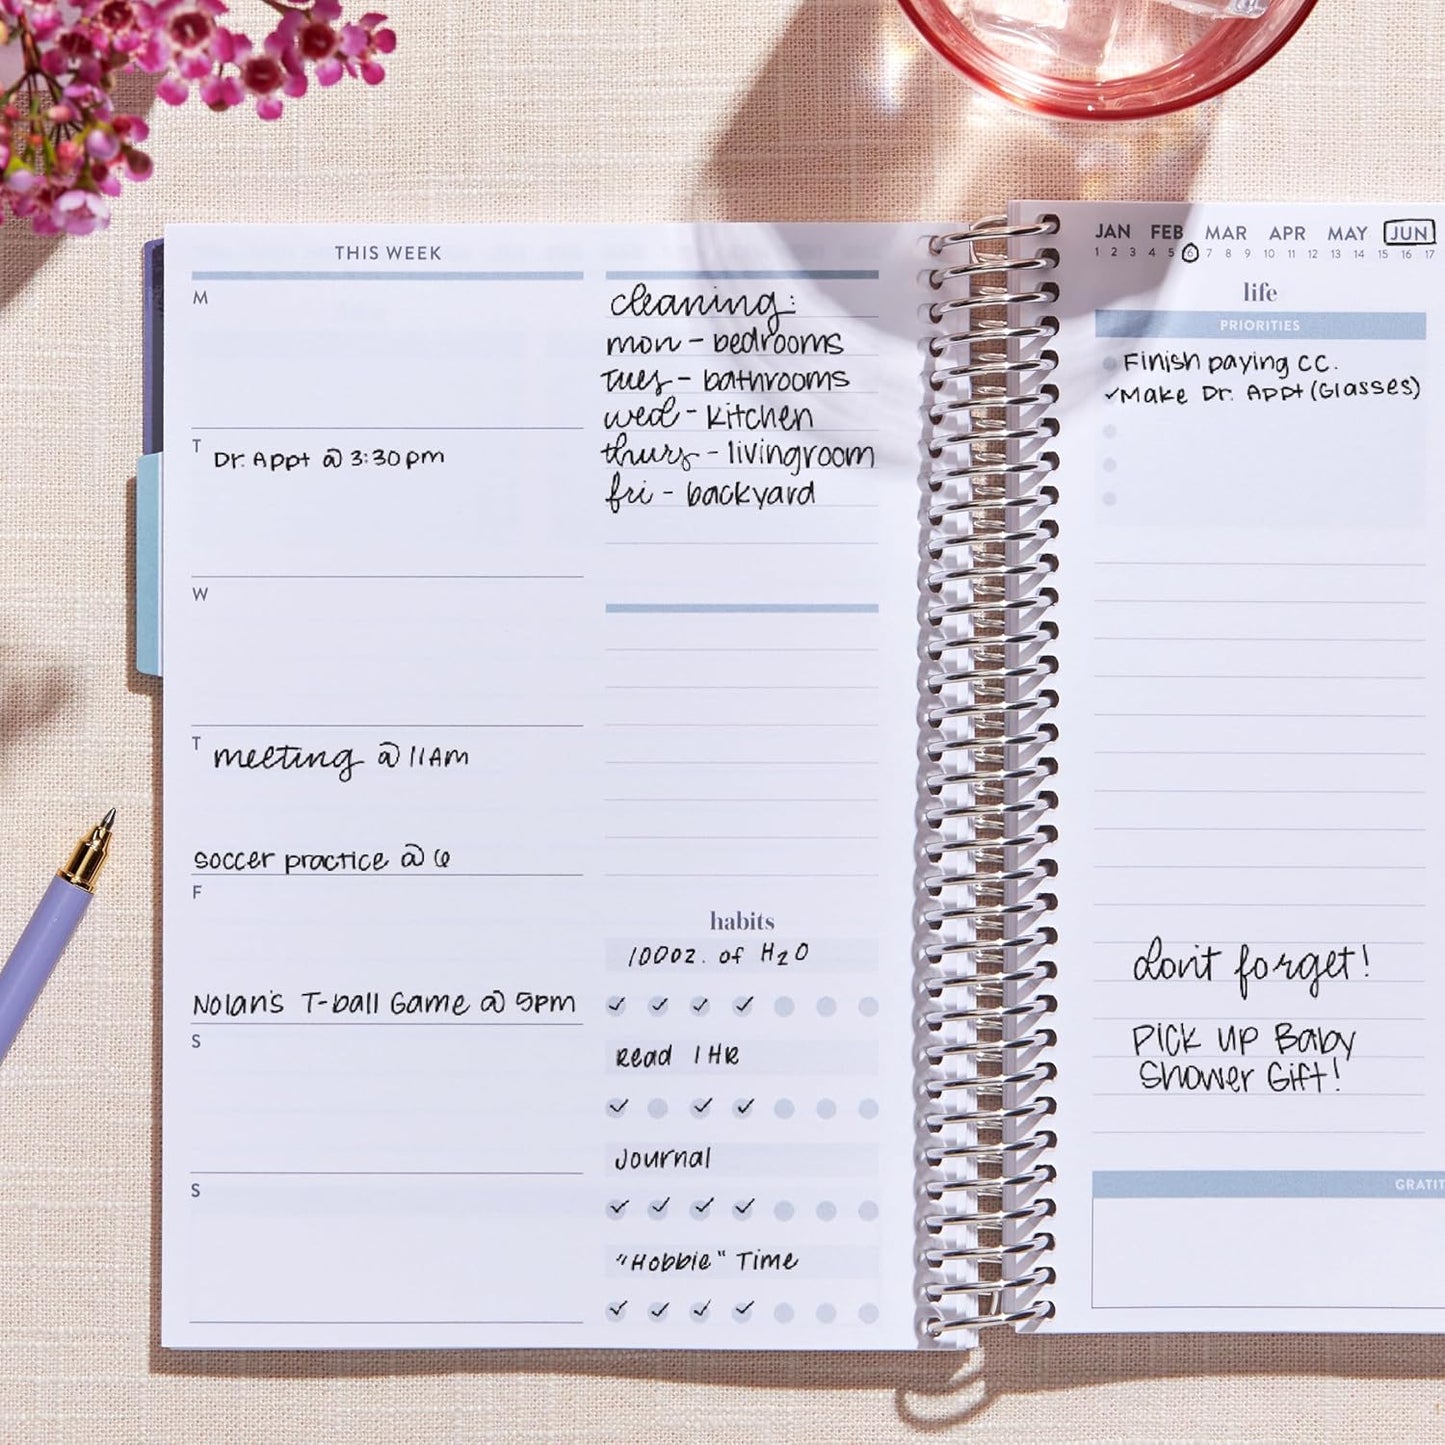 THIS WEEK
M
T
Dr. Appt @ 3:30pm
W
T
meeting @ 11AM
soccer practice @ 6
F
Nolan's T-ball Game @ 5pm
S
S
cleaning:
mon - bedrooms
tues - bathrooms
wed - kitchen
thurs - livingroom
fri - backyard
habits
100oz. of H2O
Read 1 HR
Journal
"Hobbie" Time
JAN FEB MAR APR MAY JUN
1 2 3 4 5 6 7 8 9 10 11 12 13 14 15 16 17
life
PRIORITIES
Finish paying CC.
✓Make Dr. Appt (Glasses)
don't forget!
Pick up Baby
Shower Gift!
GRATIT